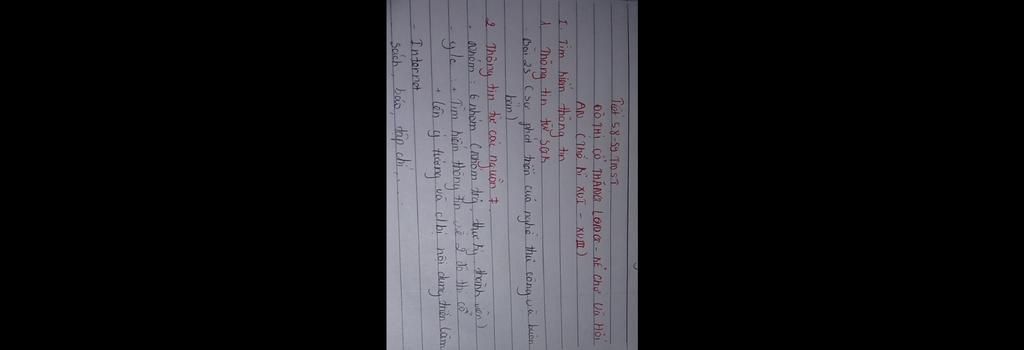 Tiết 58-59 TNST
ĐÔ THỊ CỔ THĂNG LONG - KẺ CHỢ VÀ HỘI
AN (Thế kỉ XVI - XVIII)
I. Tìm hiểu thông tin
1. Thông tin từ SGK
Bài 23 (sự phát triển của nghề thủ công và buôn
bán)
2. Thông tin từ các nguồn ≠
- Nhóm : 6 nhóm (nhóm trg, thư ký, thành viên)
- y/c : + Tìm hiểu thông tin về 2 đô thị cổ
+ Lên ý tưởng và c/bị nội dung triển lãm
- Internet
sách, báo, tạp chí,.....